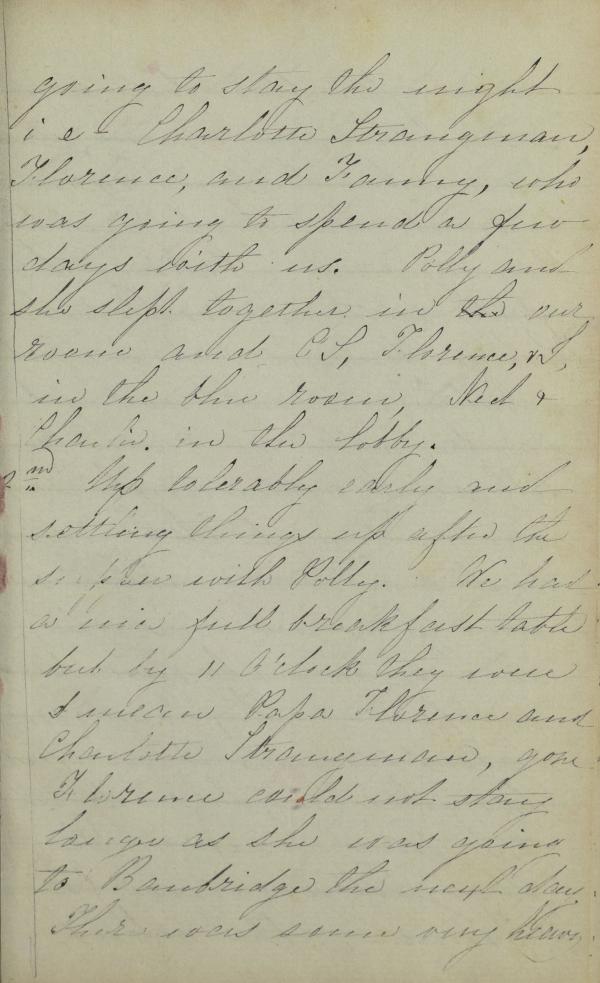 going to stay the night
i e - Charlotte Strangman,
Florence, and Fanny, who
was going to spend a few
days with us. Polly and
she slept together in the our
room and CS, Florence, & I,
in the blue room, Ned &
Charlie. in the lobby.
2nd Up tolerably early and
settling things up after the
supper with Polly. We had
a nice full breakfast table
but by 11 O'clock they were
I mean Papa Florence and
Charlotte Strangman, gone
Florence could not stay
longer as she was going
to Banbridge the next day.
There was some very heavy